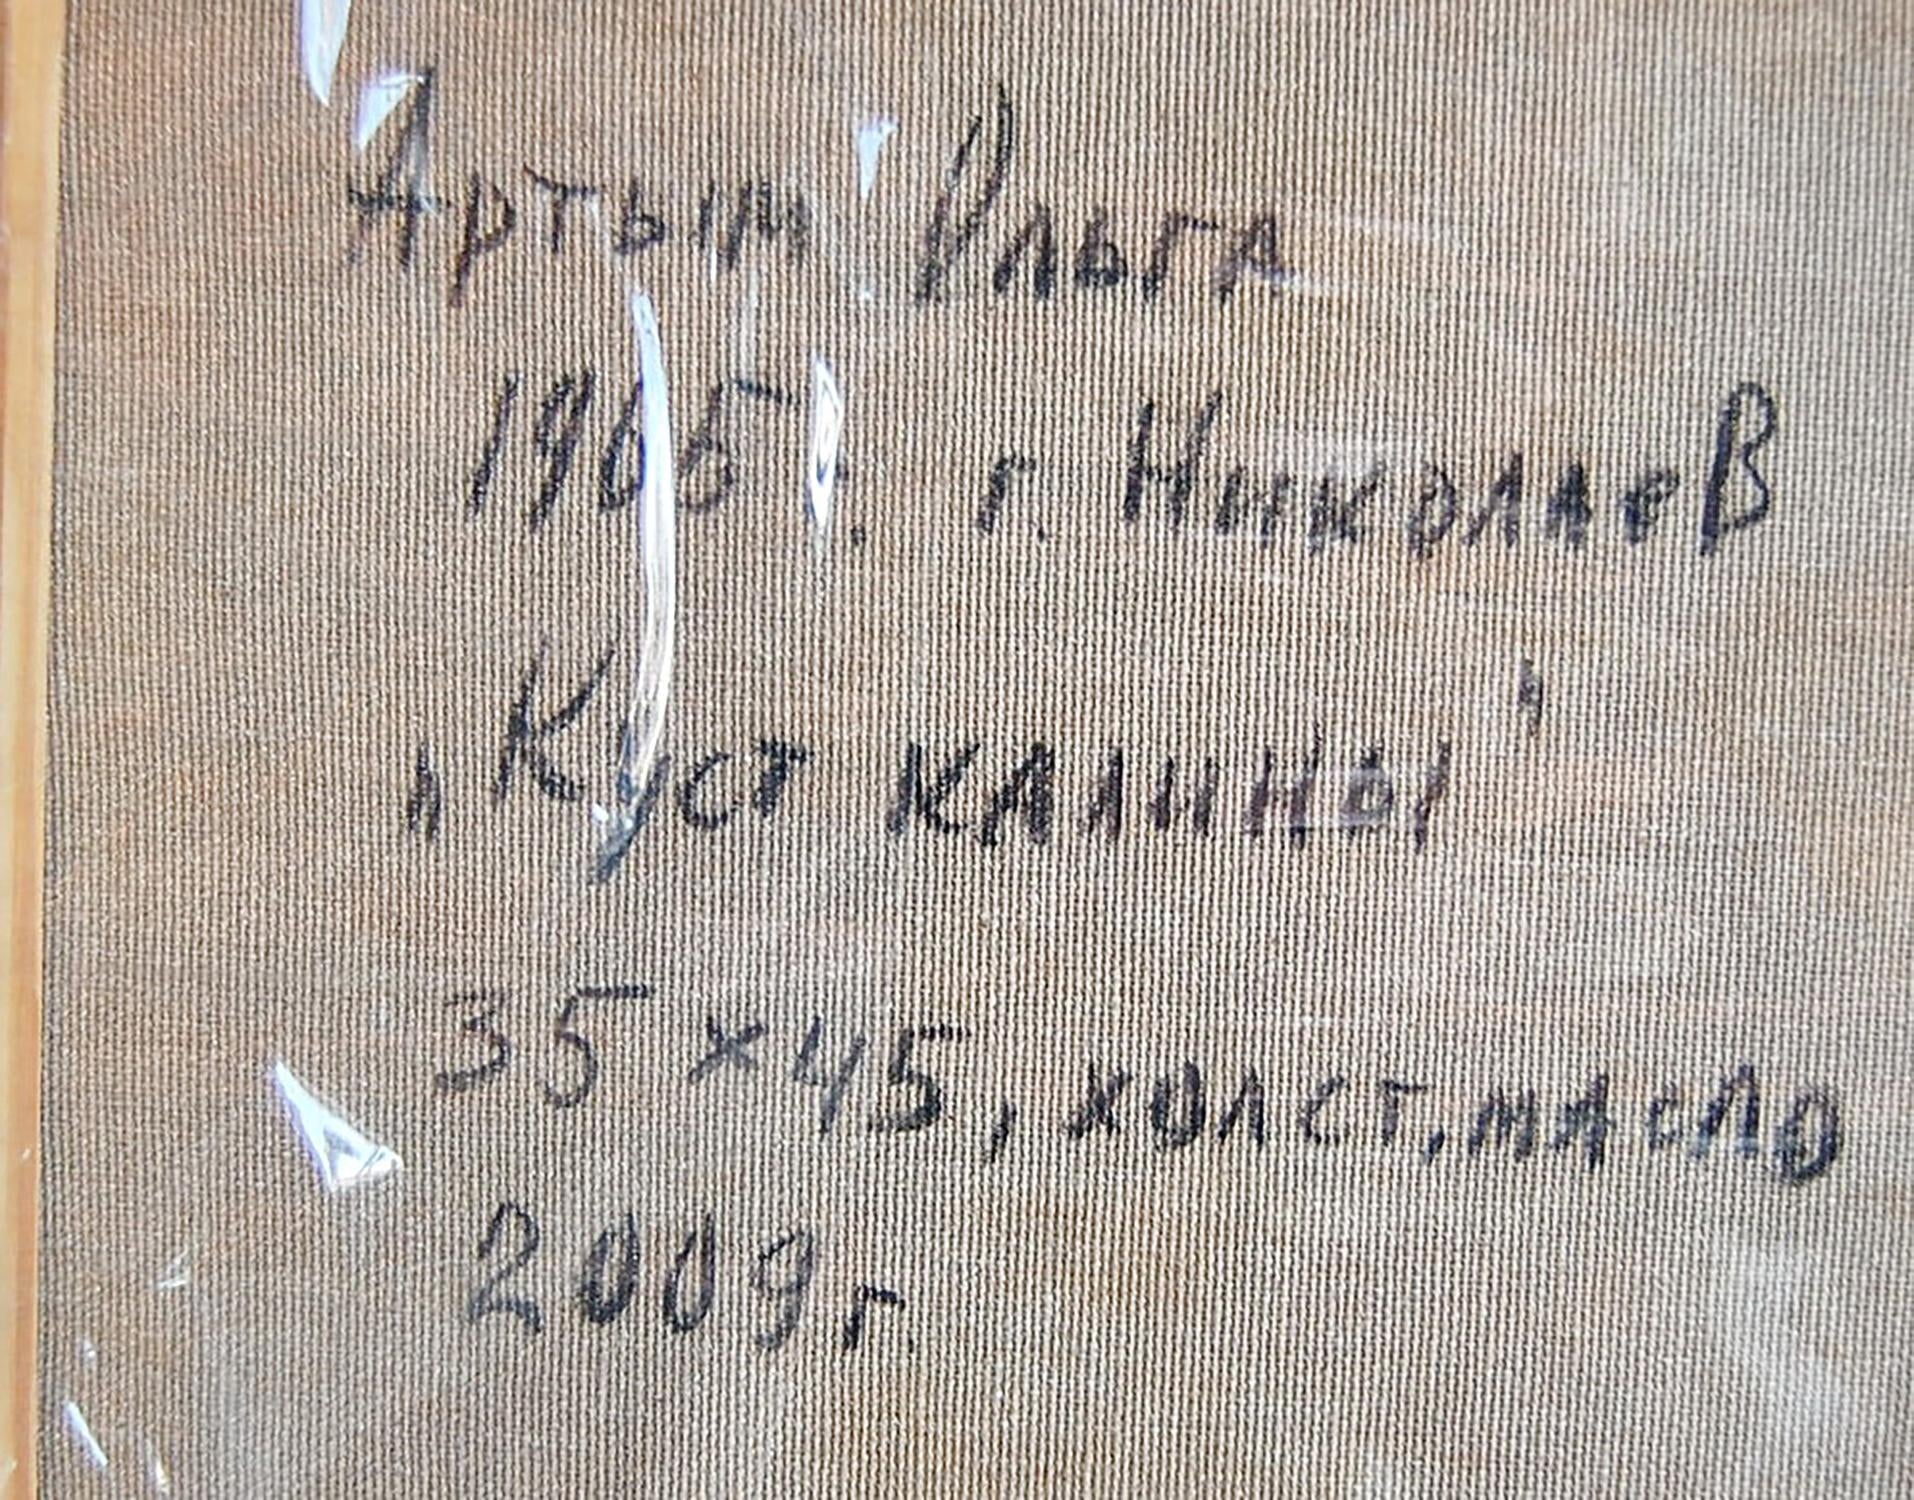 Артым Ольга
1965 г. г. Николаев
„Куст калины"
35 х 45, холст, масло
2009 г.